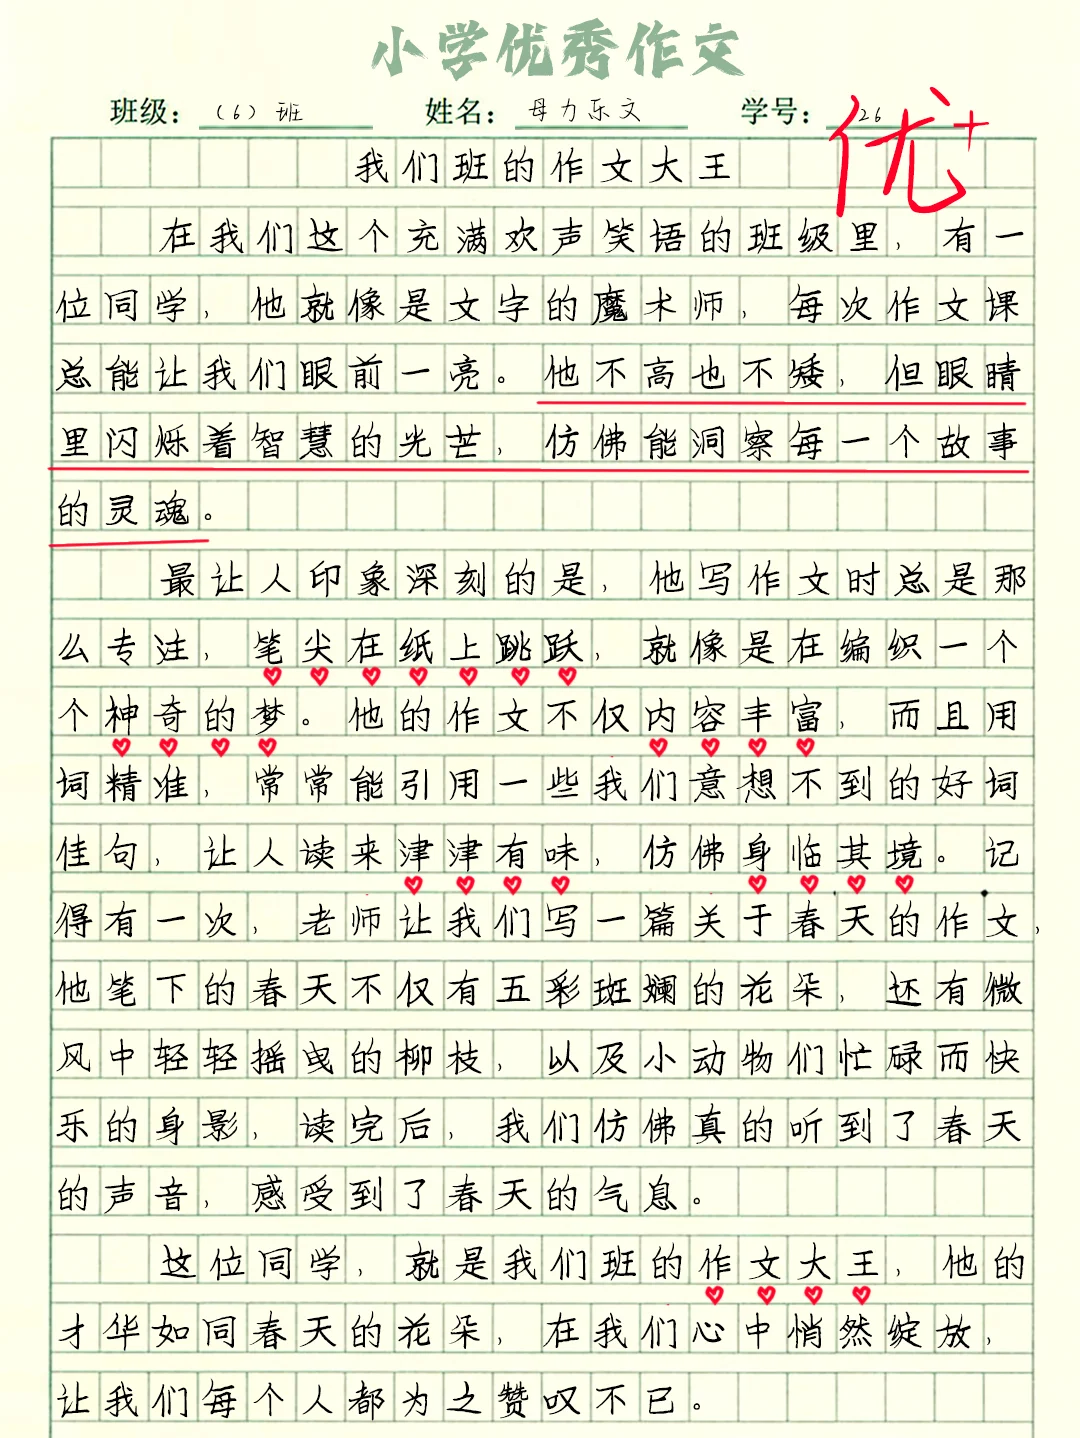 小学优秀作文
班级：（6）班 姓名：母力乐文 学号：26
优+
我们班的作文大王
在我们这个充满欢声笑语的班级里，有一
位同学，他就像是文字的魔术师，每次作文课
总能让我们眼前一亮。他不高也不矮，但眼睛
里闪烁着智慧的光芒，仿佛能洞察每一个故事
的灵魂。
最让人印象深刻的是，他写作文时总是那
么专注，笔尖在纸上跳跃，就像是在编织一个
个神奇的梦。他的作文不仅内容丰富，而且用
词精准，常常能引用一些我们意想不到的好词
佳句，让人读来津津有味，仿佛身临其境。记
得有一次，老师让我们写一篇关于春天的作文，
他笔下的春天不仅有五彩斑斓的花朵，还有微
风中轻轻摇曳的柳枝，以及小动物们忙碌而快
乐的身影，读完后，我们仿佛真的听到了春天
的声音，感受到了春天的气息。
这位同学，就是我们班的作文大王，他的
才华如同春天的花朵，在我们心中悄然绽放，
让我们每个人都为之赞叹不已。